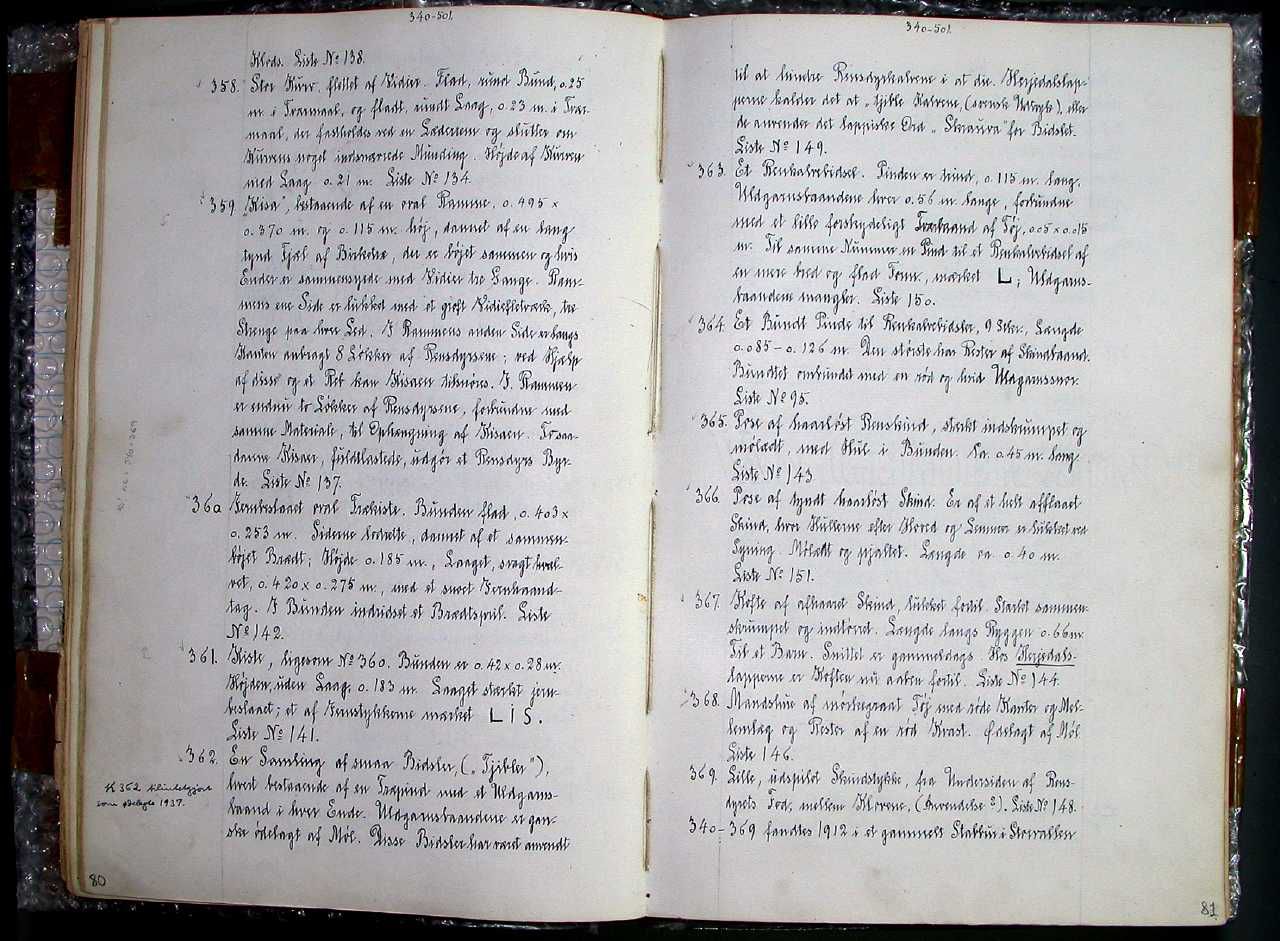 340-501.
Hreds. Liste Nº 138.
358. Stor Kurv, flettet af Vidier. Flad, rund Bund, 0.25
m. i Tværmaal, og fladt, rundt Laag, 0.23 m. i Tvær-
maal, der fastholdes ved en Læderrem og slutter om
Kurvens noget indsnævrede Munding. Højde af Kurven
med Laag 0.21 m. Liste Nº 134.
359. "Kisa", bestaaende af en oval Ramme, 0.495 ×
0.370 m. og 0.115 m. høj, dannet af en lang
tynd Fjæl af Birketræ, der er bøjet sammen og hvis
Ender er sammensyede med Vidier tre Gange. Ram-
mens ene Side er lukket med et groft Vidiefletværk, tre
Strenge paa hver Led. I Rammens anden Side er langs
Kanten anbragt 8 Løkker af Rensdyrsene; ved Hjælp
af disse og et Reb kan Kisaen tilsnøres. I Rammen
er endnu to Løkker af Rensdyrsene, forbundne med
samme Materiale, til Ophængning af Kisaen. To saa-
danne Kisaer, fuldtlastede, udgør et Rensdyrs Byr-
de. Liste Nº 137.
360 Jernbeslaaet oval Trækiste. Bunden flad, 0.403 ×
0.253 m. Siderne lodrette, dannet af et sammen-
bøjet Brædt; Højde 0.185 m., Laaget, svagt hvæl-
vet, 0.420 × 0.275 m., med et snoet Jernhaand-
tag. I Bunden indridset et Brætspil. Liste
Nº 142.
361. Kiste, ligesom Nº 360. Bunden er 0.42 × 0.28 m.
Højden, uden Laag, 0.183 m. Laaget stærkt jern-
beslaaet; et af Jernstykkerne mærket LIS.
Liste Nº 141.
362. En Samling af smaa Bidsler, ("Tjibler"),
hvert bestaaende af en Træpind med et Uldgarns-
baand i hver Ende. Uldgarnsbaandene er gan-
ske ødelagt af Møl. Disse Bidsler har været anvendt
K 362 tilintetgjort
som ødelagte 1937.
80
340-501.
til at hindre Rensdyrkalvene i at die. Herjedalslap-
perne kalder det at "tjible Kalvene, (svensk Udtryk), eller
de anvender det lappiske Ord "Skraura" for Bidslet.
Liste Nº 149.
363. Et Renkalvebidsel. Pinden er rund, 0.115 m. lang.
Uldgarnsbaandene hver 0.56 m. lange, forbundne
med et lille forskydeligt Tværbaand af Tøj, 0.05 × 0.015
m. Til samme Nummer en Pind til et Renkalvebidsel af
en mere bred og flad Form, mærket L; Uldgarns-
baandene mangler. Liste 150.
364. Et Bundt Pinde til Renkalvebidsler, 9 Stkr., Længde
0.085 – 0.126 m. Den største har Rester af Skindbaand.
Bundtet ombundet med en rød og hvid Uldgarnssnor.
Liste Nº 95.
365. Pose af haarløst Renskind, stærkt indskrumpet og
mølædt, med Hul i Bunden. Ca. 0.45 m. lang
Liste Nº 143
366. Pose af tyndt haarløst Skind. Er af et helt afflaaet
Skind, hvor Hullerne efter Hoved og Lemmer er lukket ved
Syning. Mølædt og pjaltet. Længde ca 0.40 m.
Liste Nº 151.
367. Kofte af afhaaret Skind, lukket fortil. Stærkt sammen-
skrumpet og indtørret. Længde langs Ryggen 0.66 m.
Til et Barn. Snittet er gammeldags. Hos Herjedals-
lapperne er Koften nu aaben fortil. Liste Nº 144.
368. Mandshue af mørkegraat Tøj med røde Kanter og Mel-
lemlæg og Rester af en rød Kvast. Ødelagt af Møl.
Liste 146.
369. Lille, udspilet Skindstykke, fra Undersiden af Rens-
dyrets Fod, mellem Klovene, (Anvendelse?). Liste Nº 148.
340-369 fandtes 1912 i et gammelt Stabbur i Storvallen
81